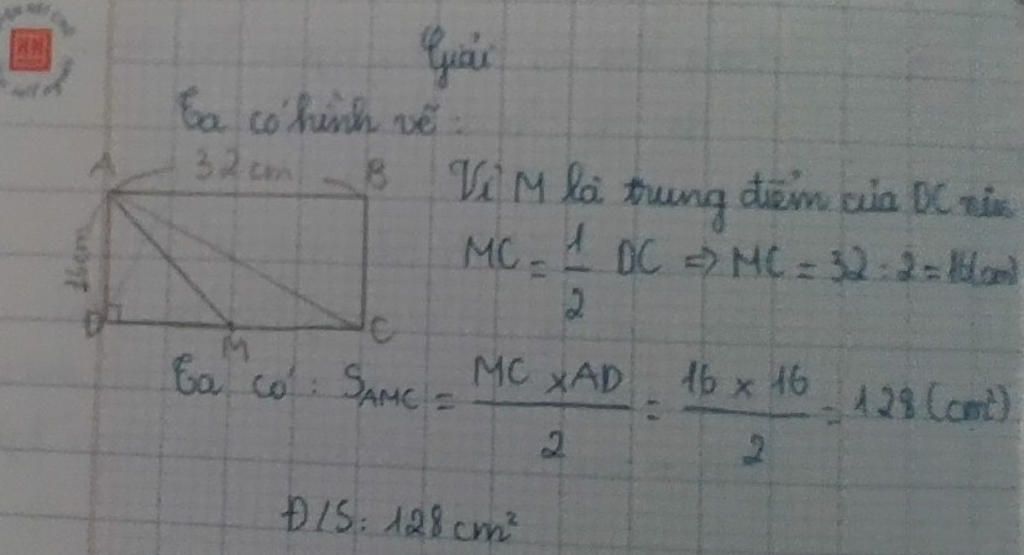 Giải
Ta có hình vẽ:
A 32cm B
Vì M là trung điểm của DC nên
16cm
MC = 1/2 DC => MC = 32 : 2 = 16(cm)
D M C
Ta có: S_AMC = MC x AD / 2 = 16 x 16 / 2 = 128 (cm²)
Đ/S: 128cm²